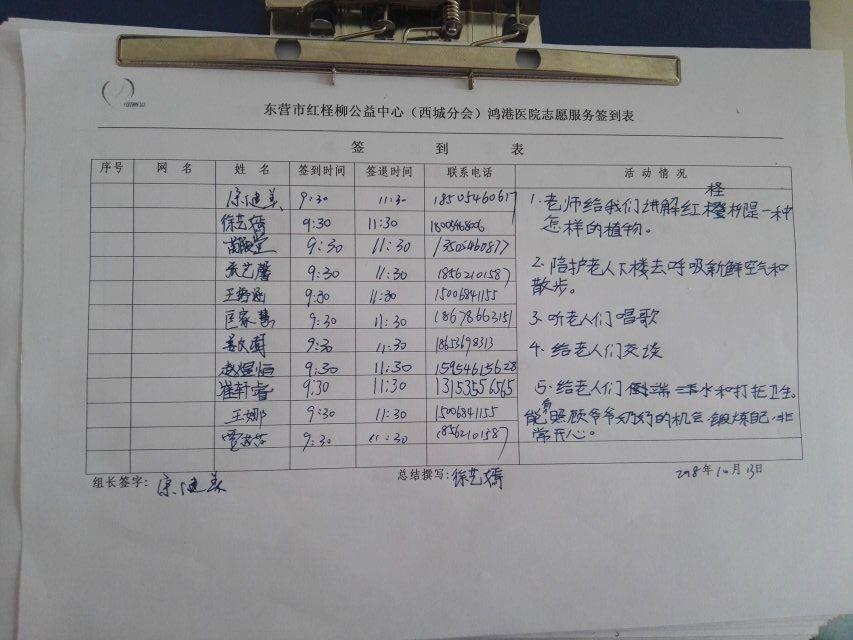 东营市红柽柳公益中心（西城分会）鸿港医院志愿服务签到表
签 到 表
序号 网 名 姓 名 签到时间 签退时间 联系电话 活 动 情 况
宗健美 9:30 11:30 18505460617
徐艺嫣 9:30 11:30 1800546806
9:30 11:30 13505460877
张艺馨 9:30 11:30 18562101587
王梓涵 9:30 11:30 15006841155
匡家慧 9:30 11:30 18678663151
9:30 11:30 18653698313
赵煜恒 9:30 11:30 15954615628
崔轩睿 9:30 11:30 13153556565
王娜 9:30 11:30 15006841155
9:30 11:30 18562101587
柽
1. 老师给我们讲解红橙柳是一种
怎样的植物。
2. 陪护老人下楼去呼吸新鲜空气和
散步。
3. 听老人们唱歌
4. 给老人们交谈
5. 给老人们倒端水和打扫卫生。
能有照顾爷爷奶奶的机会锻炼自己,非
常开心。
组长签字： 宗健美 总结撰写： 徐艺嫣 2018年10月13日